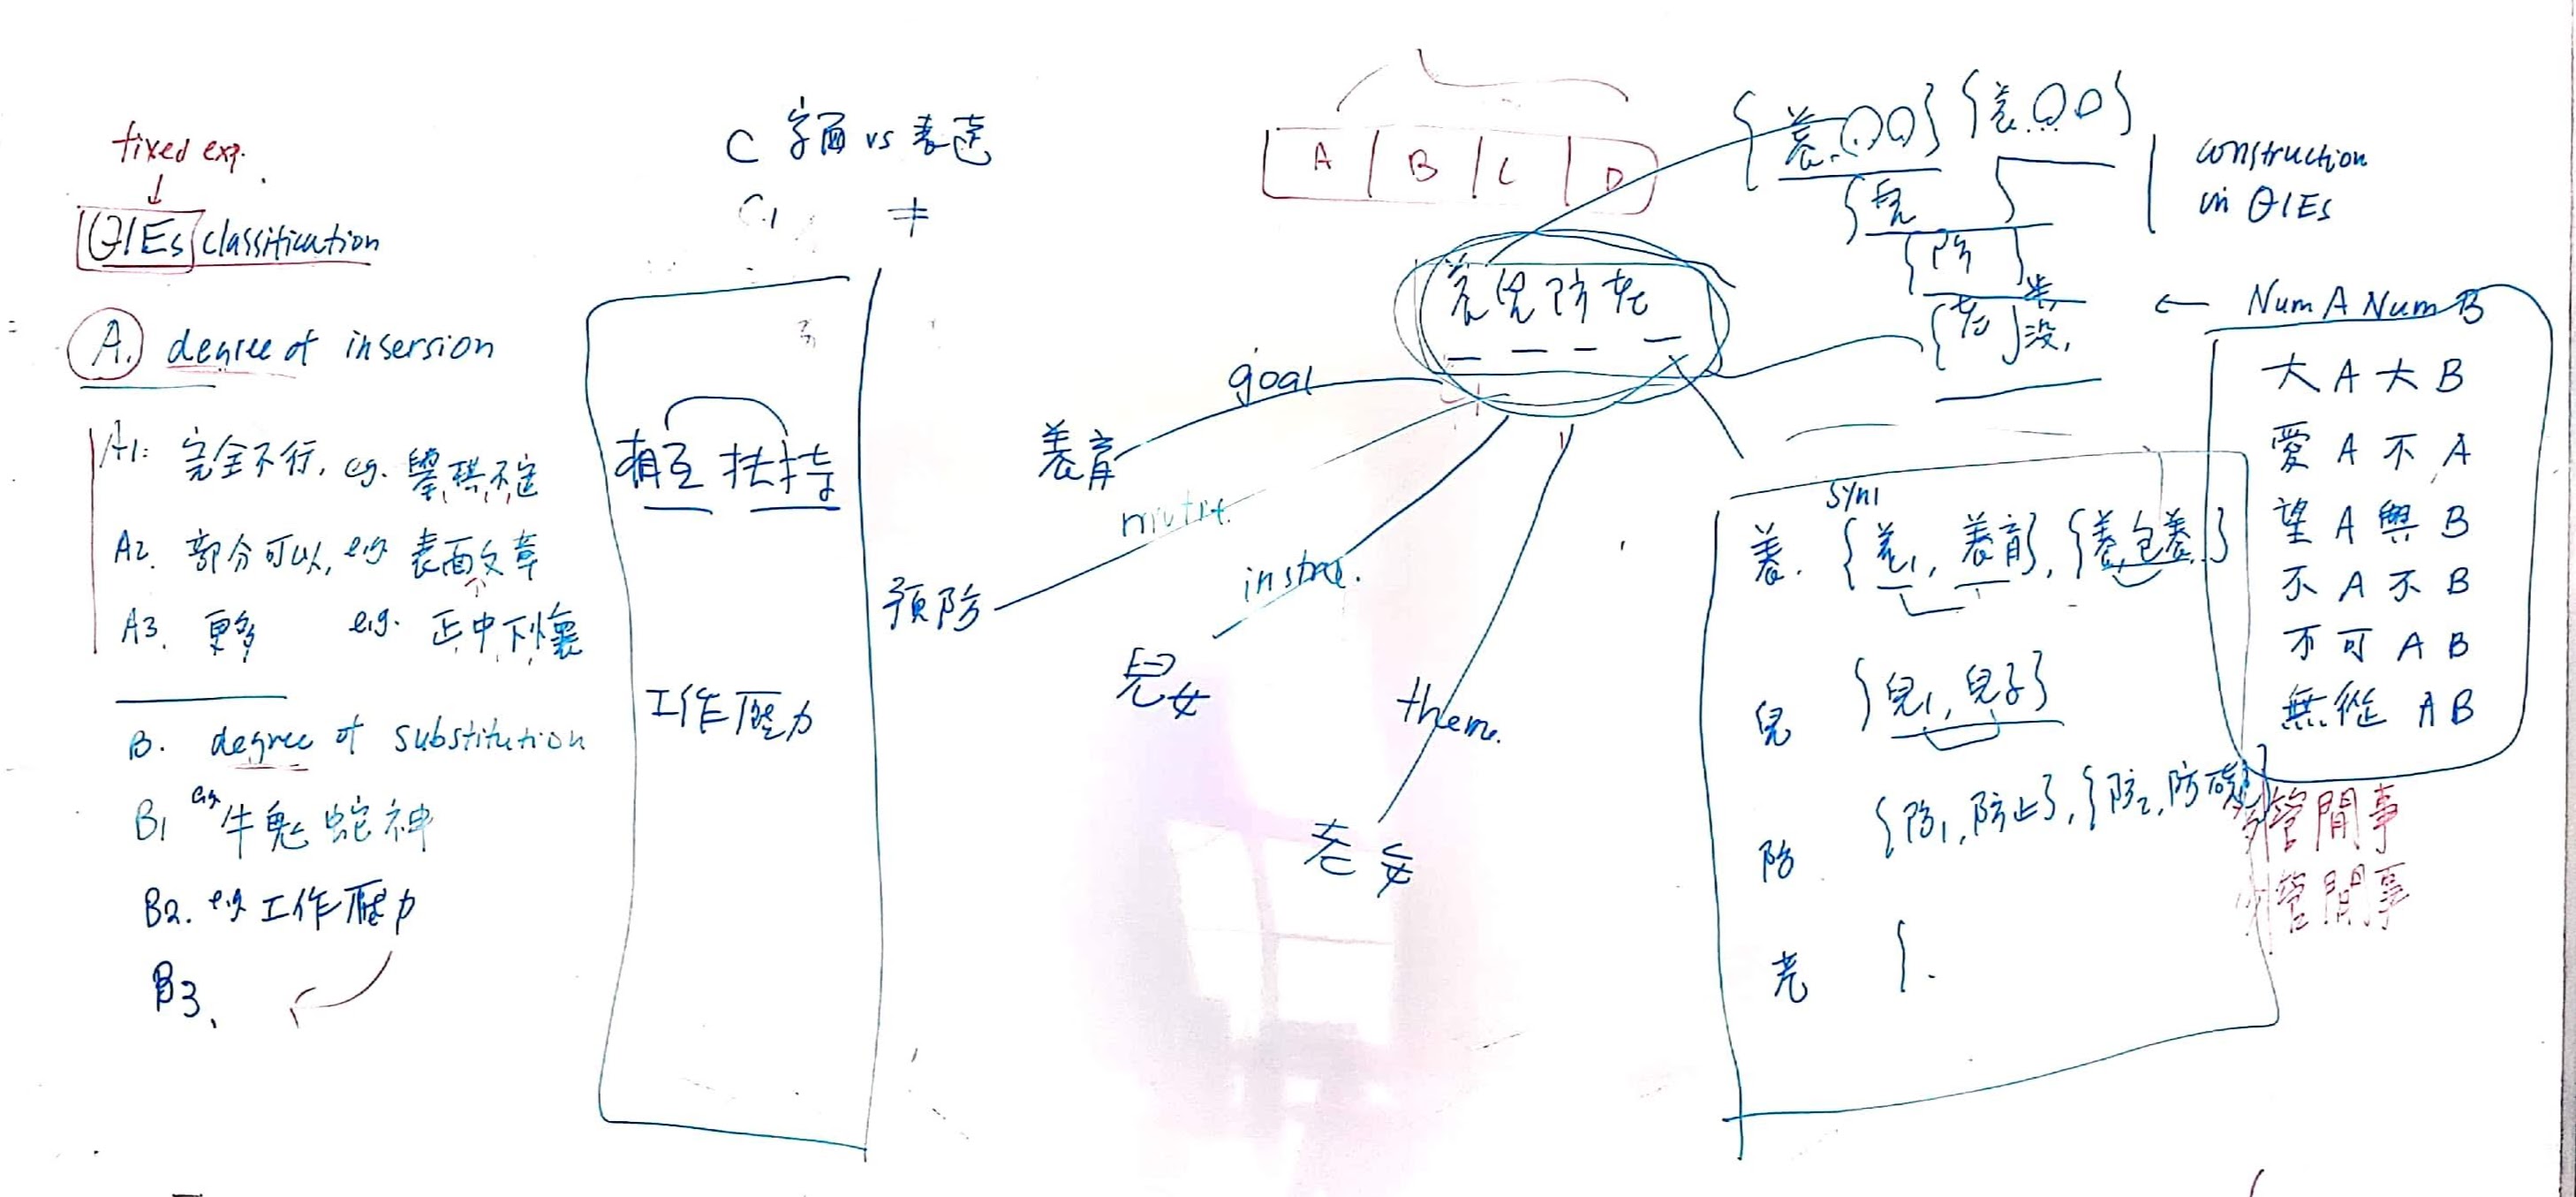 fixed exp.
QIEs classification
A. degree of insersion
A1: 完全不行, eg. 舉棋不定
A2. 部分可以, e.g. 表面文章
A3. 更多 e.g. 正中下懷
B. degree of substitution
B1 eg. 牛鬼蛇神
B2. e.g. 工作壓力
B3.
C 字面 vs 表達
C.1 ≠
相互扶持
工作壓力
A B C D
養兒防老
goal
養育
預防
instru.
兒女
theme.
老年
{養.〇〇} {養.〇〇}
{兒
{防}
{老}
construction
in QIEs
← Num A Num B
大 A 大 B
愛 A 不 A
望 A 興 B
不 A 不 B
不可 A B
無從 A B
syn1
養. {養1, 養育}, {養, 包養.}
兒 {兒1, 兒子}
防 {防1, 防止}, {防2, 防礙}
老 {.
多管閒事
少管閒事